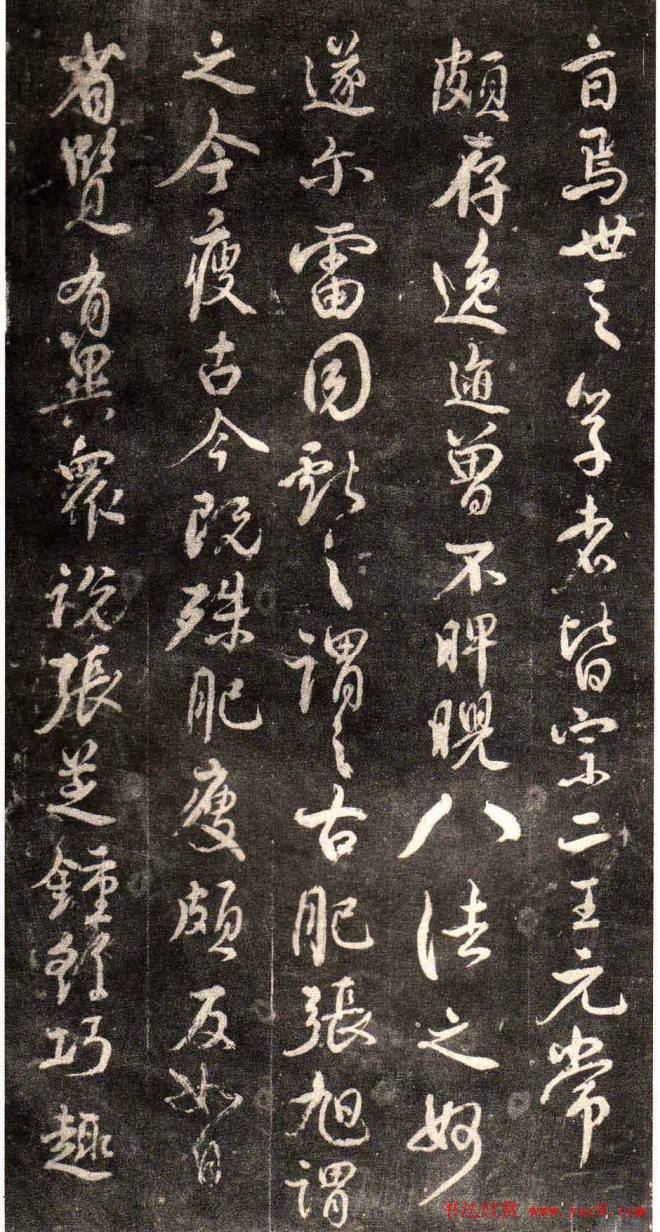 焉世之學者皆宗二王元常
頗存逸迹曾不睥睨八法之妙
遂尔雷同獻之謂之古肥張旭謂
之今瘦古今既殊肥瘦頗反如自
省覽有異衆說張芝鍾繇巧趣
书法欣赏 www.yac8.com